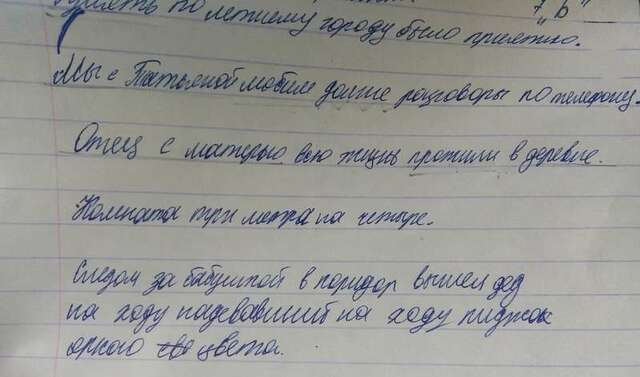 7 "в"
Гулять по летнему городу было приятно.
Мы с Татьяной любим долгие разговоры по телефону.
Отец с матерью всю жизнь прожили в деревне.
Комната три метра на четыре.
Следом за бабушкой в коридор вышел дед
на ходу надевавший на ходу пиджак
яркого цвета.